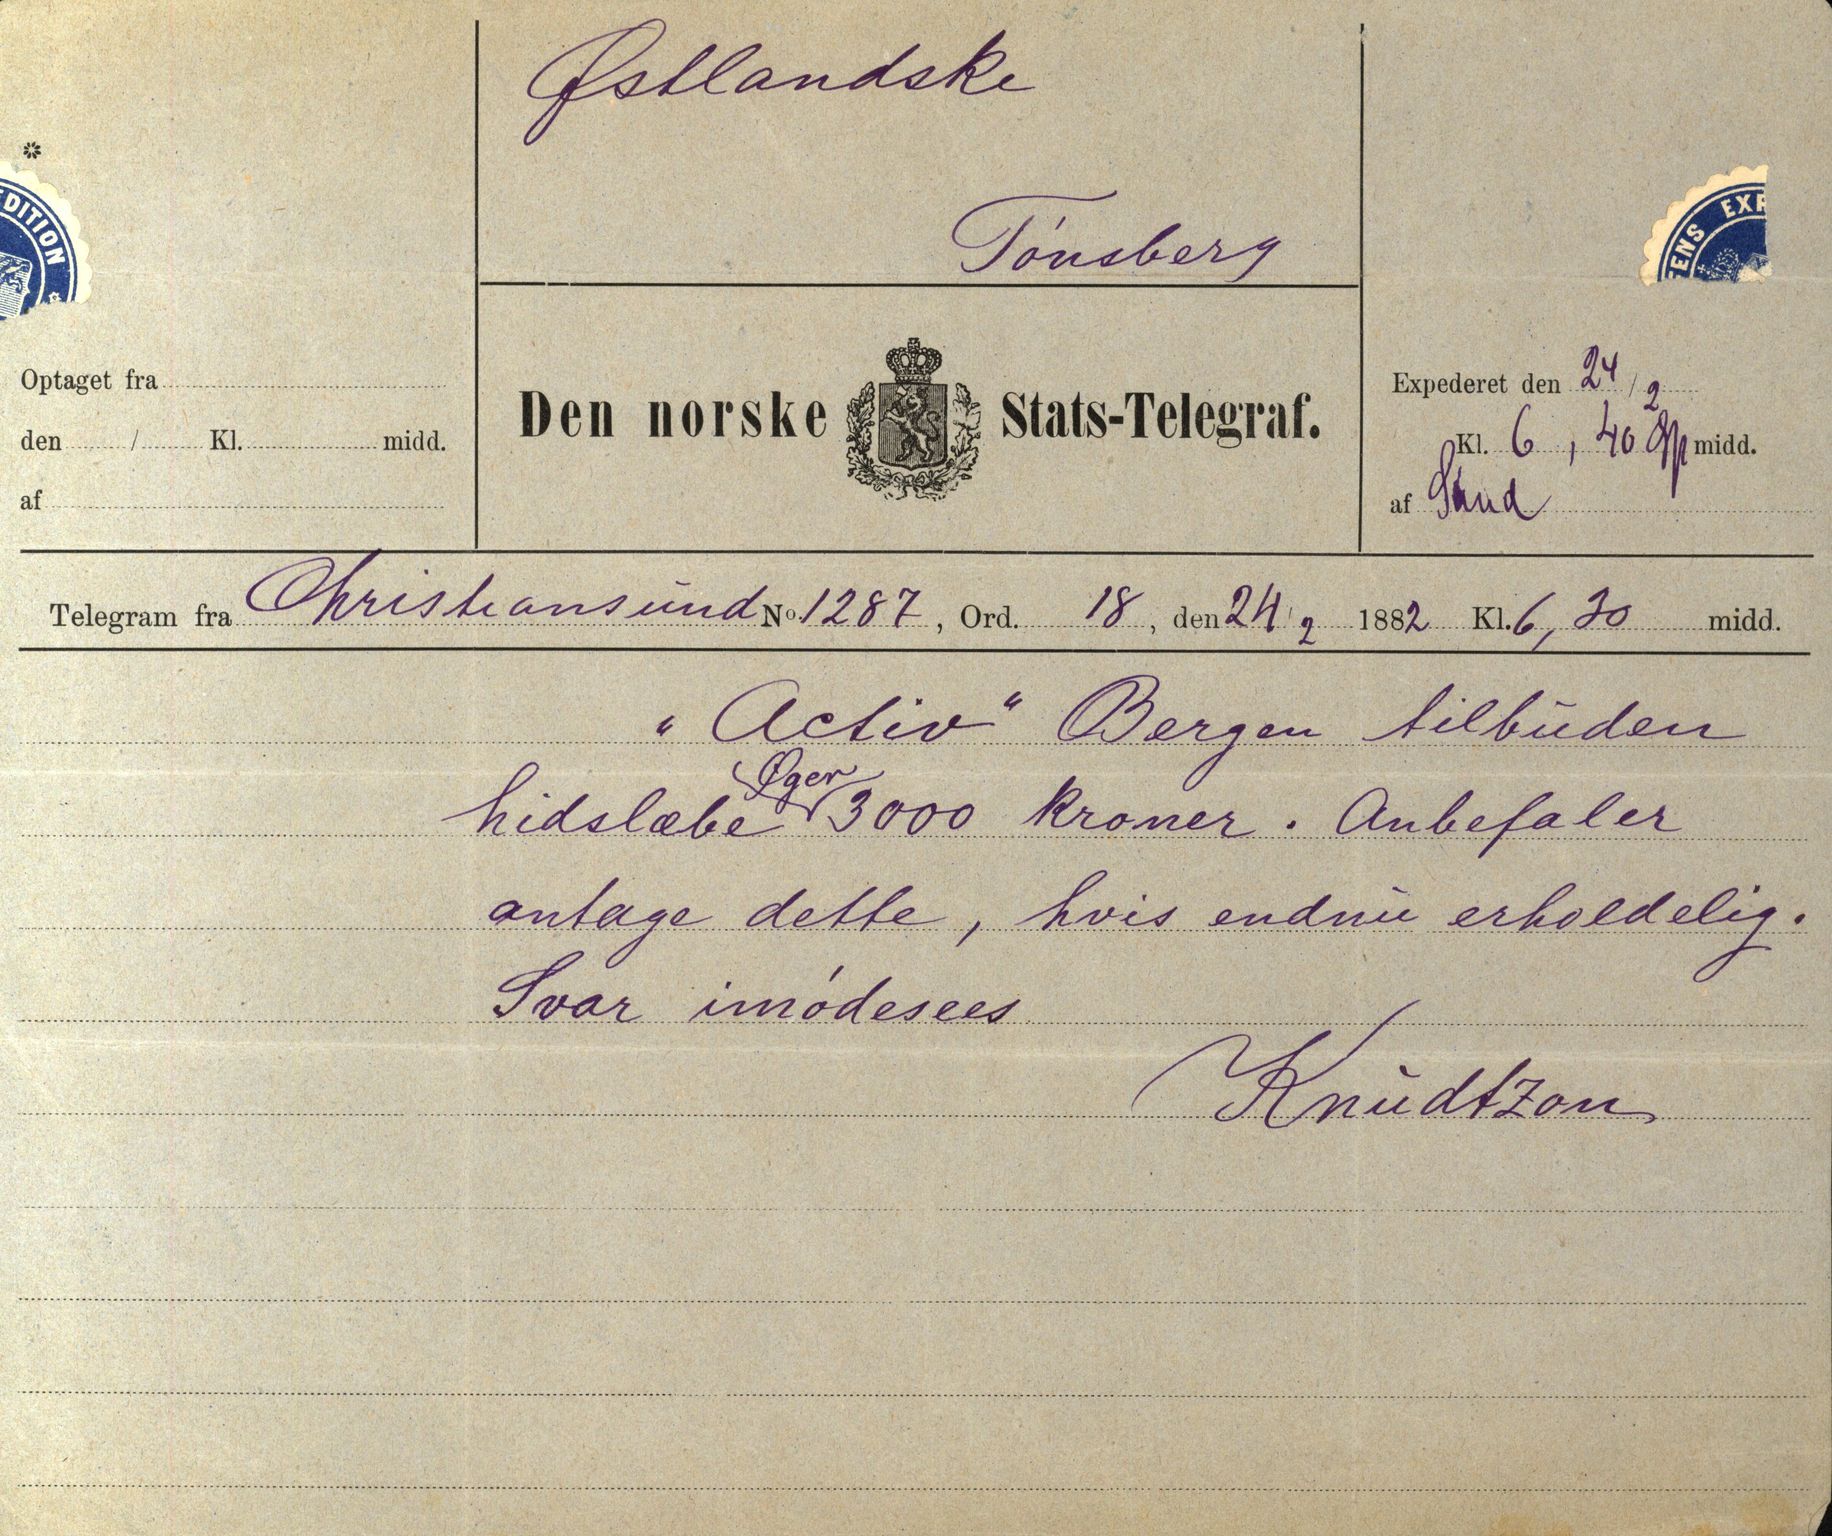 Østlandske
Tønsberg
*
EDITION
ENS EXP
Optaget fra
den / Kl. midd.
af
Den norske Stats-Telegraf.
Expederet den 24/2
Kl. 6, 40 midd.
af
Telegram fra Christiansund No. 1287, Ord. 18, den 24/2 1882 Kl. 6,30 midd.
"Activ" Bergen tilbuden
Øger
hidslæbe 3000 kroner. Anbefaler
antage dette, hvis endnu erholdelig.
Svar imødesees
Knudtzon